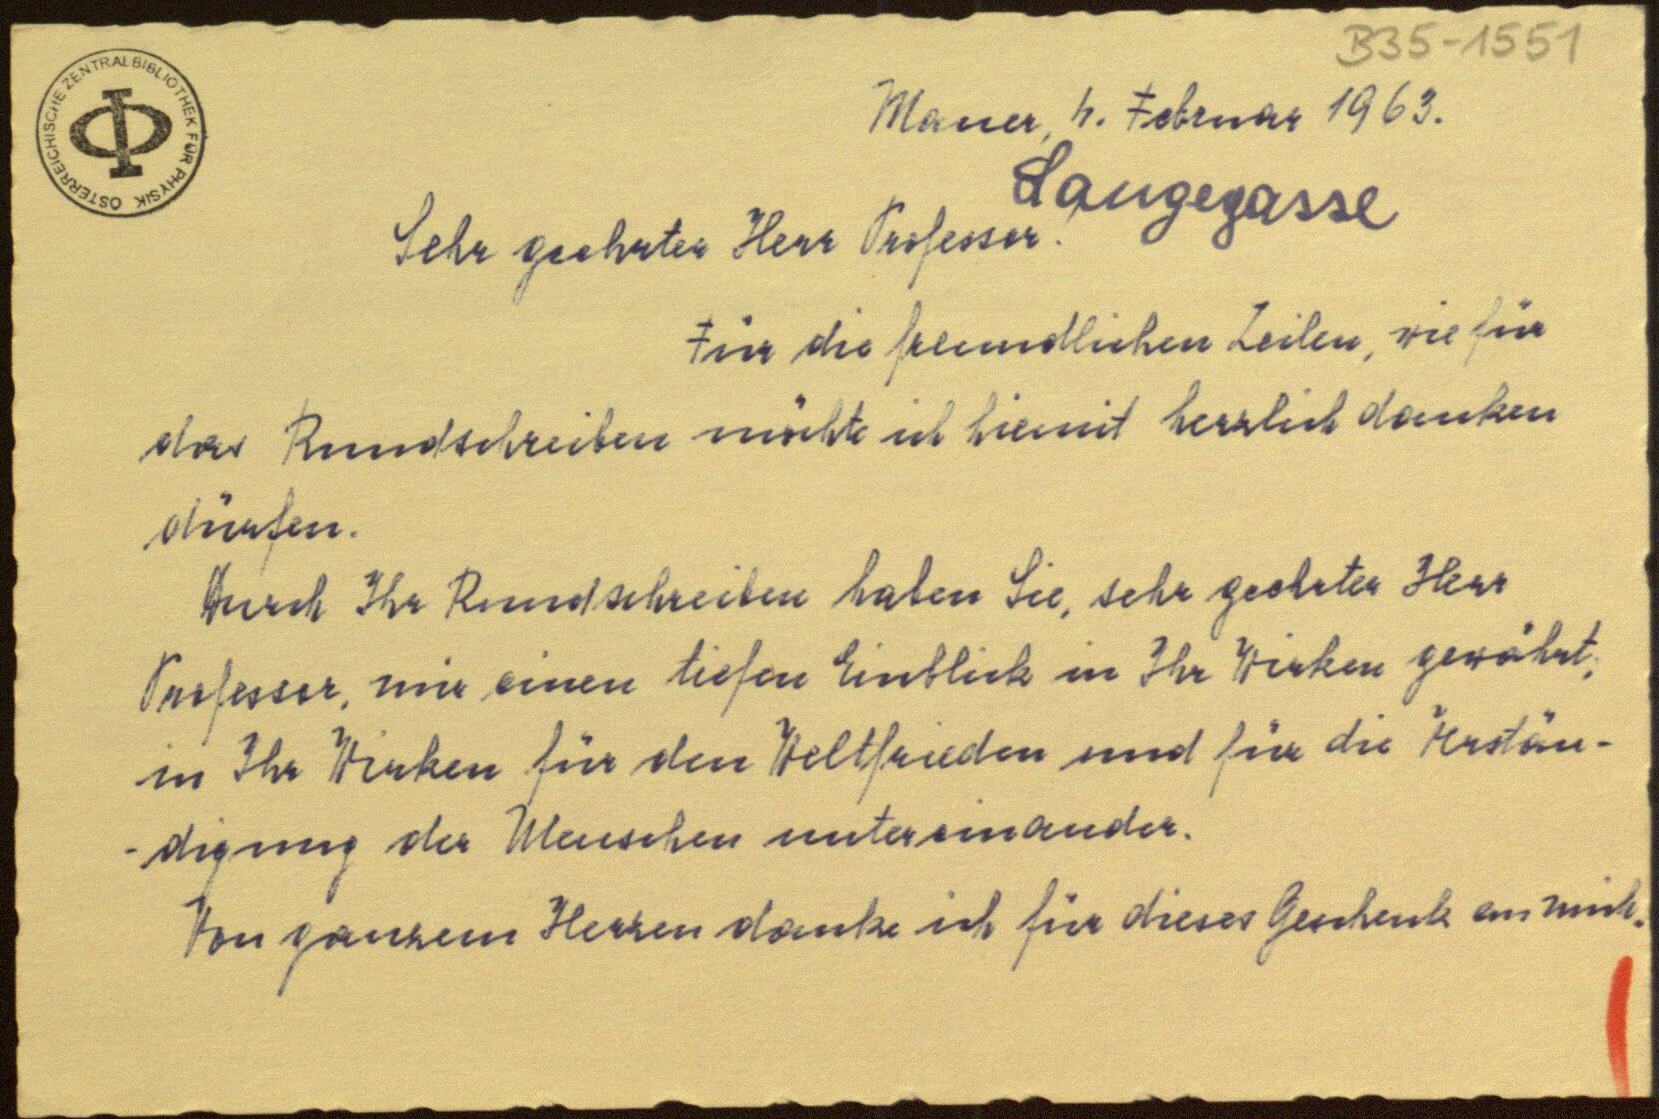 B35-1551
ÖSTERREICHISCHE ZENTRALBIBLIOTHEK FÜR PHYSIK
Mauer, 4. Februar 1963.
Langegasse
Sehr geehrter Herr Professor!
Für die freundlichen Zeilen, wie für
das Rundschreiben möchte ich hiemit herzlich danken
dürfen.
Durch Ihr Rundschreiben haben Sie, sehr geehrter Herr
Professor, mir einen tiefen Einblick in Ihr Wirken gewährt;
in Ihr Wirken für den Weltfrieden und für die Verstän-
-digung der Menschen untereinander.
Von ganzem Herzen danke ich für dieses Geschenk an mich.